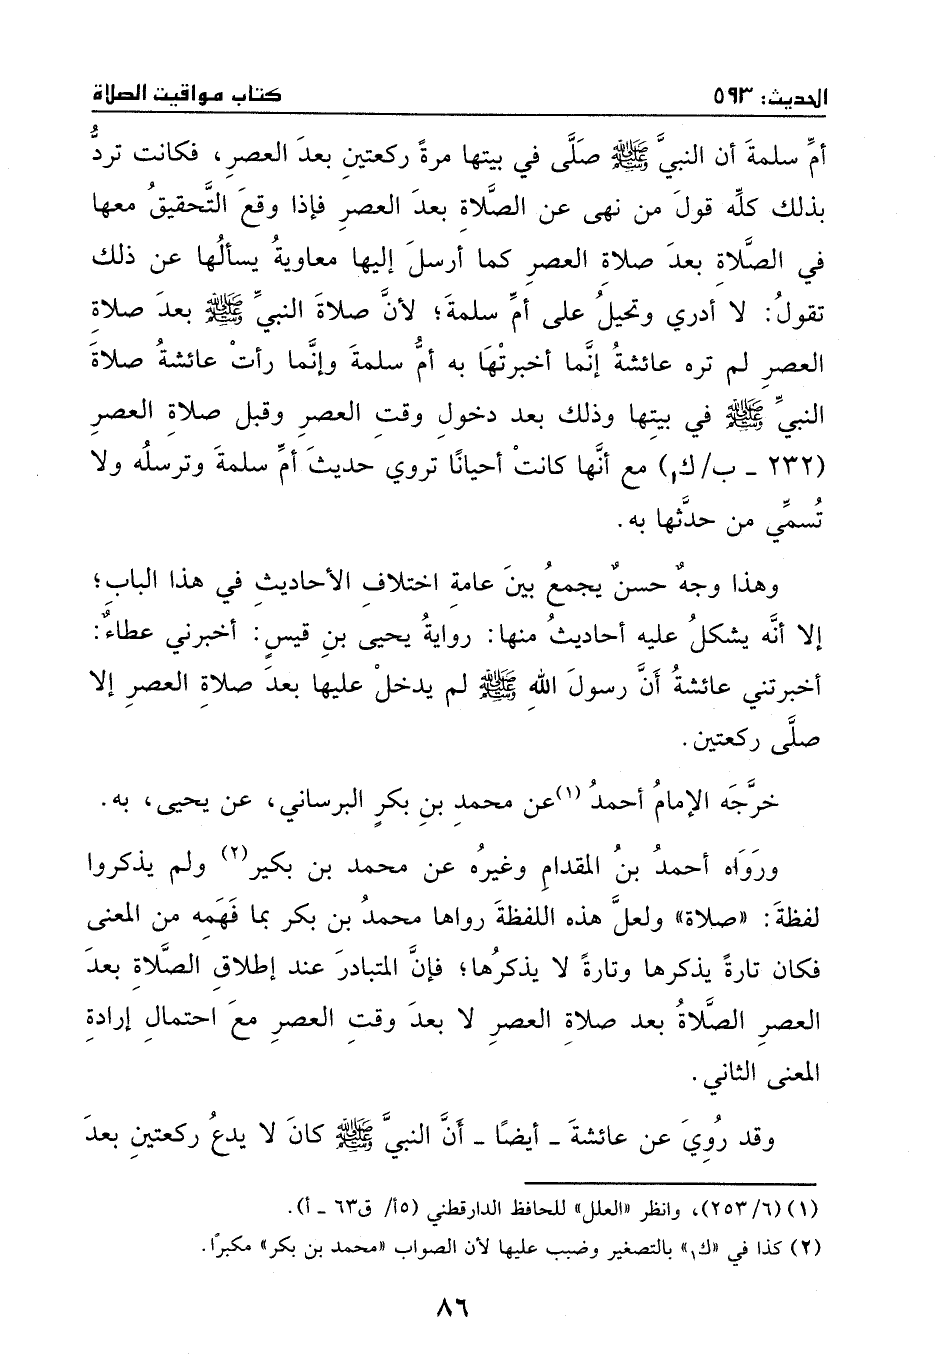 الحديث: ٥٩٣ كتاب مواقيت الصلاة
أمِّ سلمةَ أن النبيَّ ﷺ صَلَّى في بيتها مرةً ركعتينِ بعدَ العصرِ، فكانت تردُّ
بذلك كلِّه قولَ من نهى عن الصَّلاةِ بعدَ العصرِ فإذا وقعَ التَّحقيقُ معها
في الصَّلاةِ بعدَ صلاةِ العصرِ كما أرسلَ إليها معاويةُ يسألُها عن ذلك
تقولُ: لا أدري وتحيلُ على أمِّ سلمةَ؛ لأنَّ صلاةَ النبيِّ ﷺ بعدَ صلاةِ
العصرِ لم تره عائشةُ إنَّما أخبرتْهَا به أمُّ سلمةَ وإنَّما رأتْ عائشةُ صلاةَ
النبيِّ ﷺ في بيتِها وذلك بعد دخولِ وقتِ العصرِ وقبل صلاةِ العصرِ
(٢٣٢ - ب/ك١) مع أنَّها كانتْ أحيانًا تروي حديثَ أمِّ سلمةَ وترسلُه ولا
تُسمِّي من حدَّثها به.
وهذا وجهٌ حسنٌ يجمعُ بينَ عامةِ اختلافِ الأحاديثِ في هذا البابِ؛
إلا أنَّه يشكلُ عليه أحاديثُ منها: روايةُ يحيى بنِ قيسٍ: أخبرني عطاءٌ:
أخبرتني عائشةُ أنَّ رسولَ اللهِ ﷺ لم يدخلْ عليها بعدَ صلاةِ العصرِ إلا
صلَّى ركعتين.
خرَّجَه الإمامُ أحمدُ (١) عن محمدِ بنِ بكرٍ البرساني، عن يحيى، به.
ورَوَاه أحمدُ بنُ المقدامِ وغيرُه عن محمد بن بكير(٢) ولم يذكروا
لفظةَ: «صلاة» ولعلَّ هذه اللفظةَ رواها محمدُ بن بكر بما فَهَمِه من المعنى
فكان تارةً يذكرها وتارةً لا يذكرُها؛ فإنَّ المتبادرَ عند إطلاقِ الصَّلاةِ بعدَ
العصرِ الصَّلاةُ بعد صلاةِ العصرِ لا بعدَ وقتِ العصرِ معَ احتمالِ إرادةِ
المعنى الثاني.
وقد رُوِيَ عن عائشةَ - أيضًا - أنَّ النبيَّ ﷺ كانَ لا يدعُ ركعتينِ بعدَ
(١) (٦/ ٢٥٣)، وانظر «العلل» للحافظ الدارقطني (٥أ/ ق٦٣ - أ).
(٢) كذا في «ك١» بالتصغير وضبب عليها لأن الصواب «محمد بن بكر» مكبرًا.
٨٦